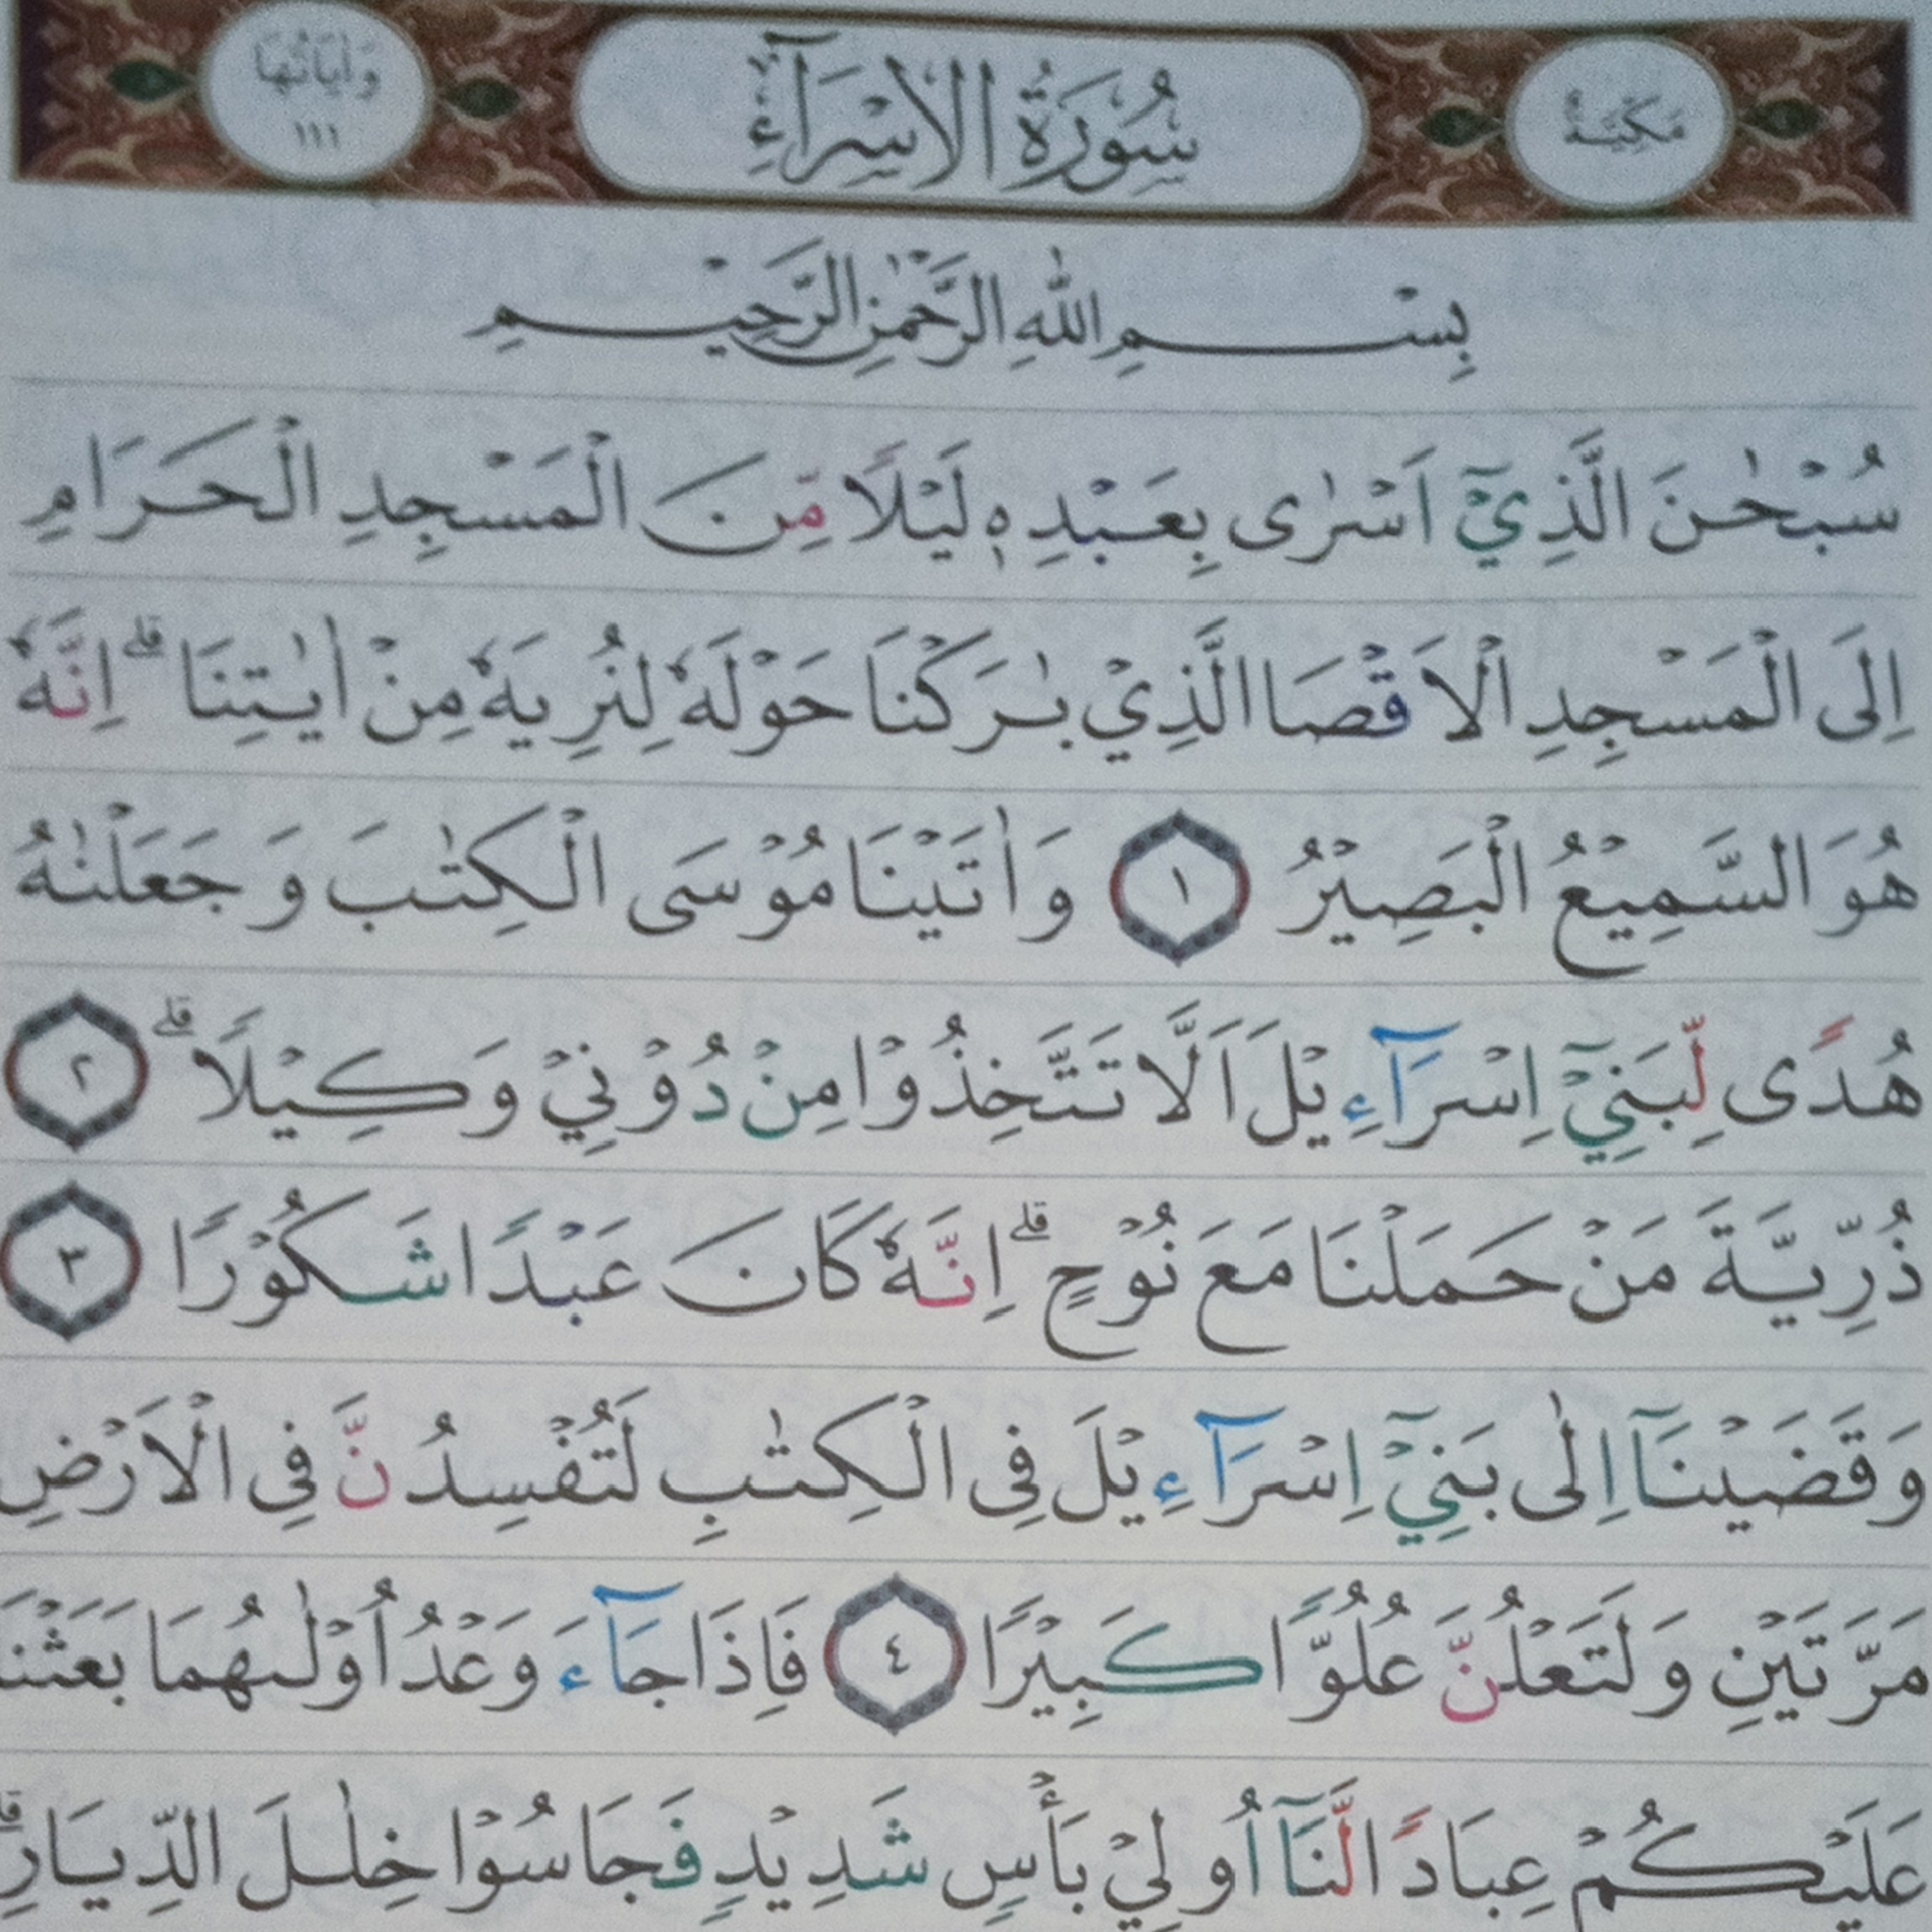 مَكِّيَّةٌ سُوْرَةُ الْاِسْرَآءِ وَاٰيَاتُهَا ١١١
بِسْمِ اللّٰهِ الرَّحْمٰنِ الرَّحِيْمِ
سُبْحٰنَ الَّذِيْٓ اَسْرٰى بِعَبْدِهٖ لَيْلًا مِّنَ الْمَسْجِدِ الْحَرَامِ
اِلَى الْمَسْجِدِ الْاَقْصَا الَّذِيْ بٰرَكْنَا حَوْلَهٗ لِنُرِيَهٗ مِنْ اٰيٰتِنَا ۗ اِنَّهٗ
هُوَ السَّمِيْعُ الْبَصِيْرُ ١ وَاٰتَيْنَا مُوْسَى الْكِتٰبَ وَجَعَلْنٰهُ
هُدًى لِّبَنِيْٓ اِسْرَآءِيْلَ اَلَّا تَتَّخِذُوْا مِنْ دُوْنِيْ وَكِيْلًا ۗ ٢
ذُرِّيَّةَ مَنْ حَمَلْنَا مَعَ نُوْحٍ ۗ اِنَّهٗ كَانَ عَبْدًا شَكُوْرًا ٣
وَقَضَيْنَآ اِلٰى بَنِيْٓ اِسْرَآءِيْلَ فِى الْكِتٰبِ لَتُفْسِدُنَّ فِى الْاَرْضِ
مَرَّتَيْنِ وَلَتَعْلُنَّ عُلُوًّا كَبِيْرًا ٤ فَاِذَا جَآءَ وَعْدُ اُوْلٰىهُمَا بَعَثْنَا
عَلَيْكُمْ عِبَادًا لَّنَآ اُولِيْ بَأْسٍ شَدِيْدٍ فَجَاسُوْا خِلٰلَ الدِّيَارِ ۗ